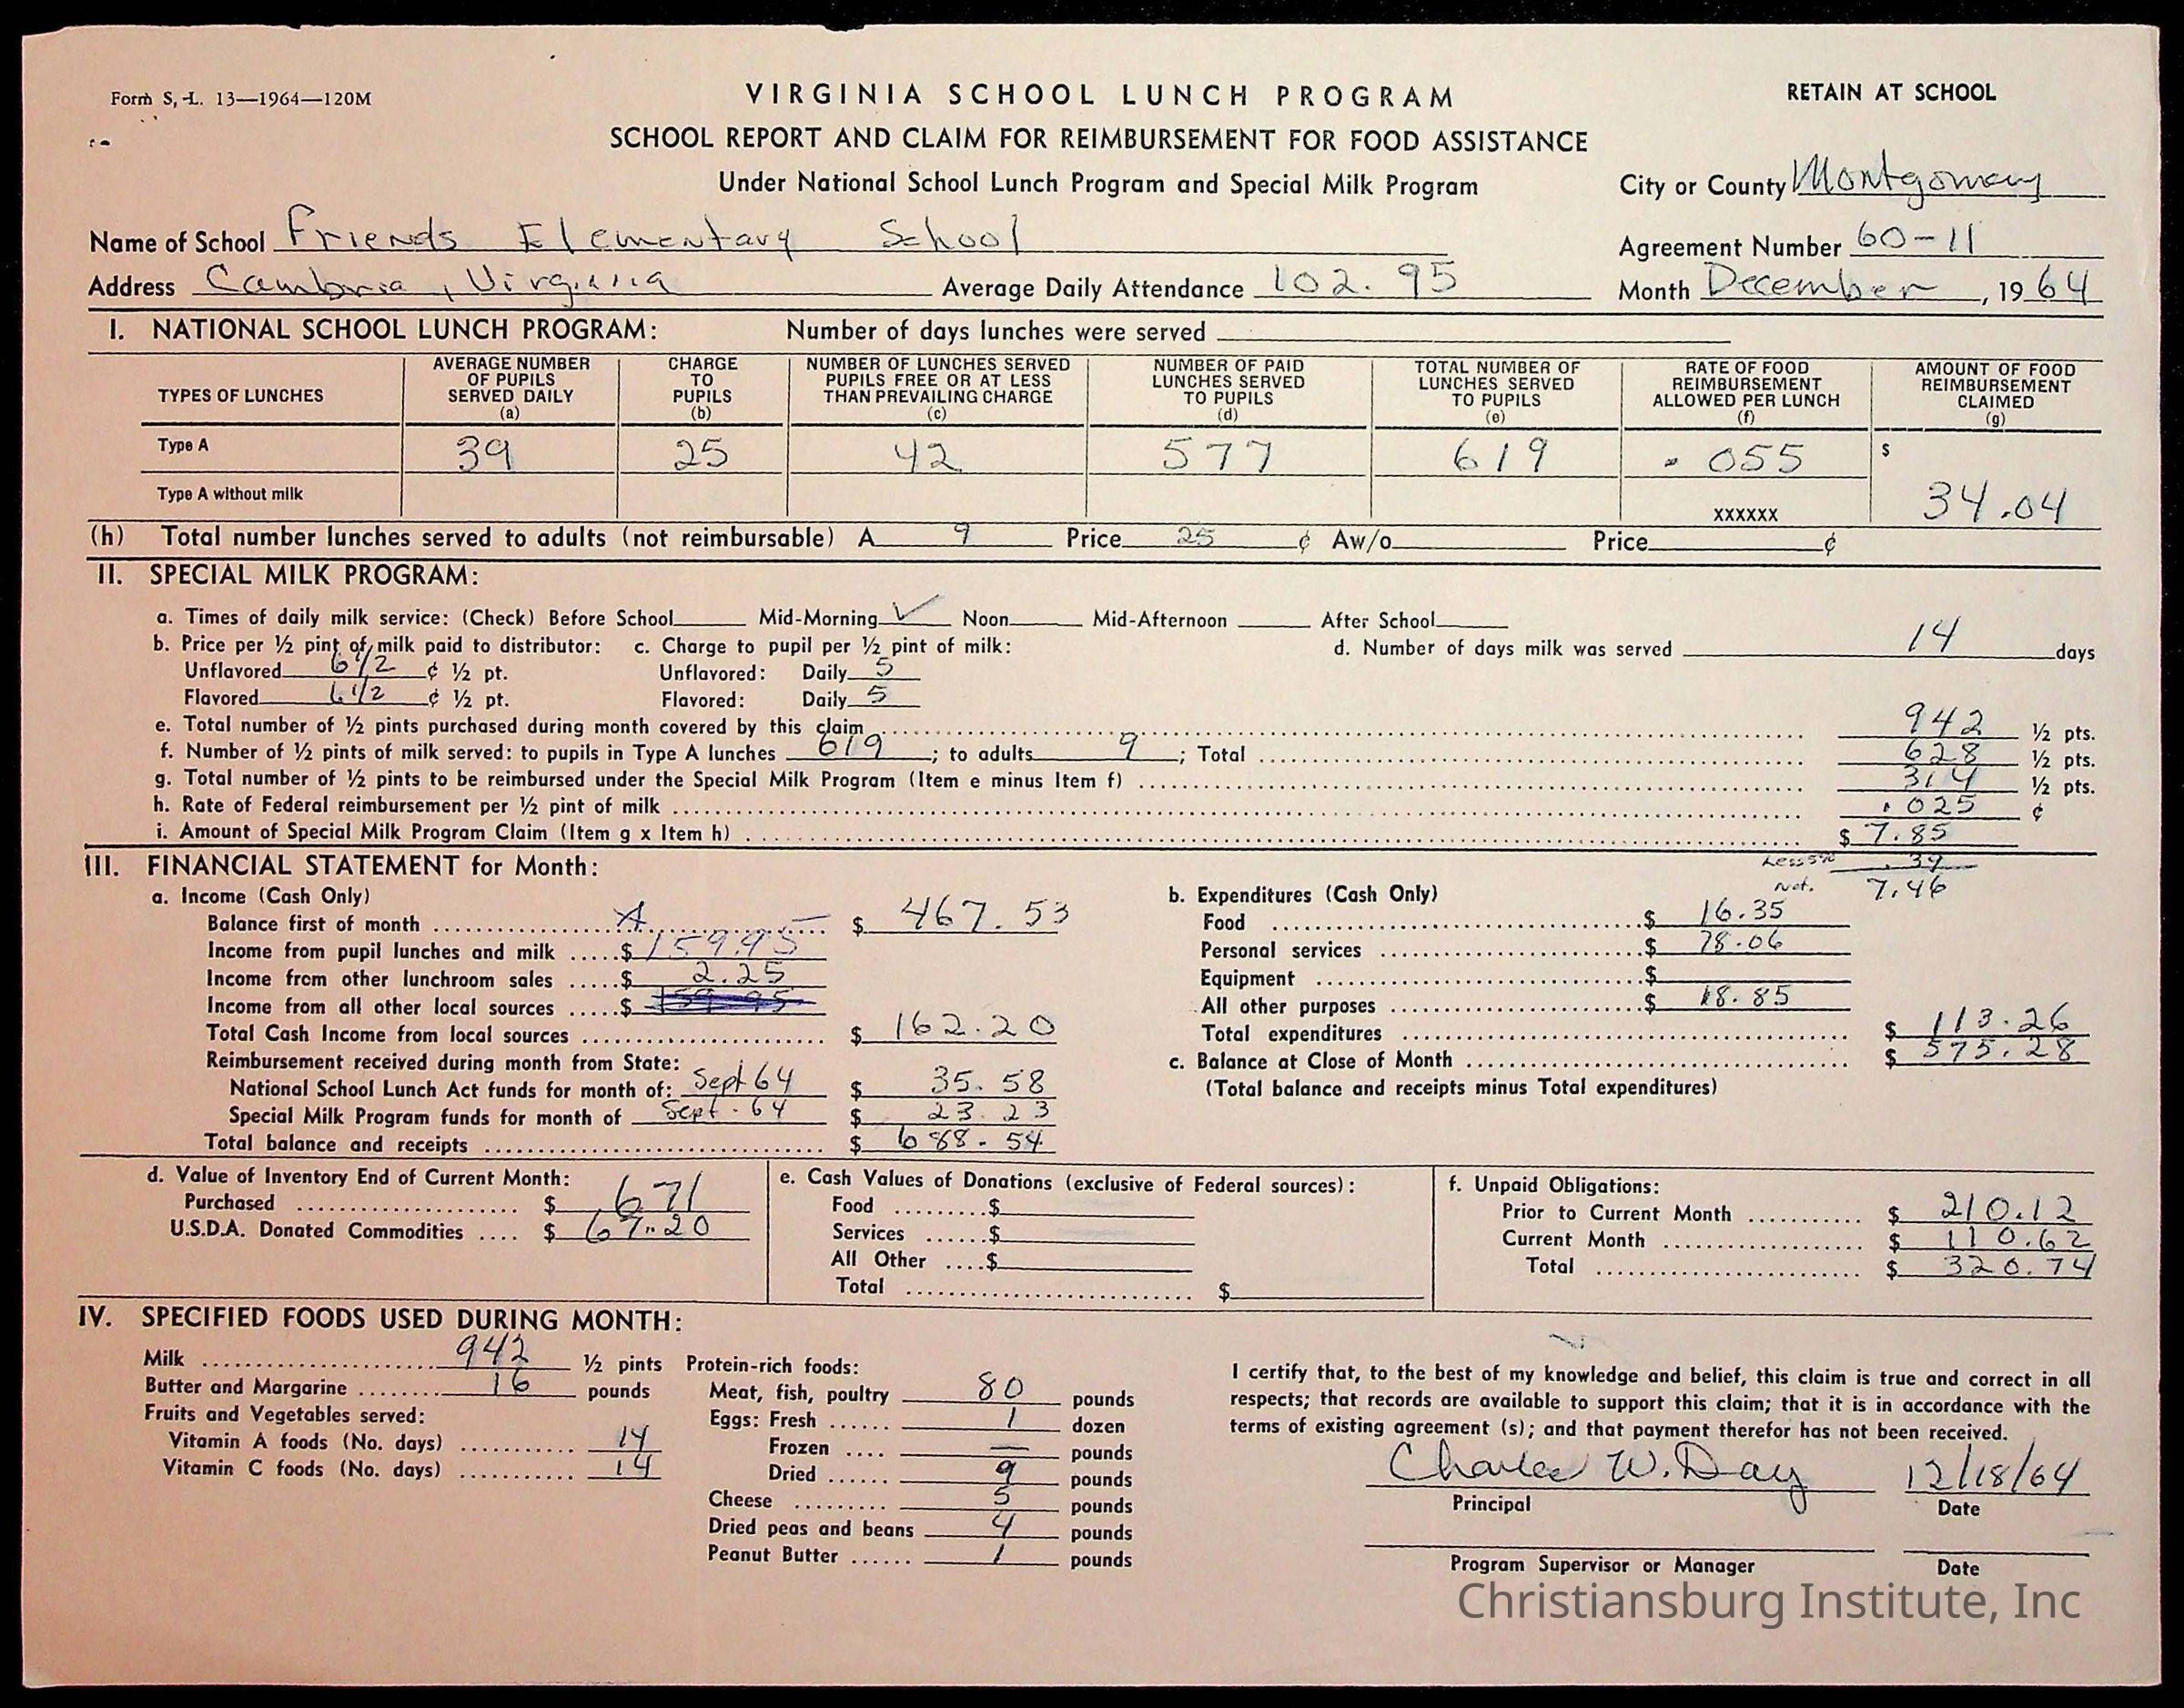 Form S, L. 13—1964—120M
VIRGINIA SCHOOL LUNCH PROGRAM
RETAIN AT SCHOOL
SCHOOL REPORT AND CLAIM FOR REIMBURSEMENT FOR FOOD ASSISTANCE
Under National School Lunch Program and Special Milk Program
City or County Montgomery
Name of School Friends Elementary School
Agreement Number 60-11
Address Cambria, Virginia Average Daily Attendance 102.95 Month December, 1964
I. NATIONAL SCHOOL LUNCH PROGRAM: Number of days lunches were served
TYPES OF LUNCHES
AVERAGE NUMBER OF PUPILS SERVED DAILY (a)
CHARGE TO PUPILS (b)
NUMBER OF LUNCHES SERVED PUPILS FREE OR AT LESS THAN PREVAILING CHARGE (c)
NUMBER OF PAID LUNCHES SERVED TO PUPILS (d)
TOTAL NUMBER OF LUNCHES SERVED TO PUPILS (e)
RATE OF FOOD REIMBURSEMENT ALLOWED PER LUNCH (f)
AMOUNT OF FOOD REIMBURSEMENT CLAIMED (g)
Type A 39 25 42 577 619 .055 $
Type A without milk XXXXXX 34.04
(h) Total number lunches served to adults (not reimbursable) A 9 Price 25 ¢ Aw/o Price ¢
II. SPECIAL MILK PROGRAM:
a. Times of daily milk service: (Check) Before School Mid-Morning ✓ Noon Mid-Afternoon After School
b. Price per ½ pint of milk paid to distributor: c. Charge to pupil per ½ pint of milk: d. Number of days milk was served 14 days
Unflavored 6 1/2 ¢ ½ pt. Unflavored: Daily 5
Flavored 6 1/2 ¢ ½ pt. Flavored: Daily 5
e. Total number of ½ pints purchased during month covered by this claim 942 ½ pts.
f. Number of ½ pints of milk served: to pupils in Type A lunches 619; to adults 9; Total 628 ½ pts.
g. Total number of ½ pints to be reimbursed under the Special Milk Program (Item e minus Item f) 314 ½ pts.
h. Rate of Federal reimbursement per ½ pint of milk .025 ¢
i. Amount of Special Milk Program Claim (Item g x Item h) $ 7.85
Less 5% .39
Net. 7.46
III. FINANCIAL STATEMENT for Month:
a. Income (Cash Only)
Balance first of month $ 467.53
Income from pupil lunches and milk $ 159.95
Income from other lunchroom sales $ 2.25
Income from all other local sources $ 159.95
Total Cash Income from local sources $ 162.20
Reimbursement received during month from State:
National School Lunch Act funds for month of: Sept 64 $ 35.58
Special Milk Program funds for month of Sept. 64 $ 23.23
Total balance and receipts $ 688.54
b. Expenditures (Cash Only)
Food $ 16.35
Personal services $ 78.06
Equipment $
All other purposes $ 18.85
Total expenditures $ 113.26
c. Balance at Close of Month $ 575.28
(Total balance and receipts minus Total expenditures)
d. Value of Inventory End of Current Month:
Purchased $ 671
U.S.D.A. Donated Commodities $ 67.20
e. Cash Values of Donations (exclusive of Federal sources):
Food $
Services $
All Other $
Total $
f. Unpaid Obligations:
Prior to Current Month $ 210.12
Current Month $ 110.62
Total $ 320.74
IV. SPECIFIED FOODS USED DURING MONTH:
Milk 942 ½ pints
Butter and Margarine 16 pounds
Fruits and Vegetables served:
Vitamin A foods (No. days) 14
Vitamin C foods (No. days) 14
Protein-rich foods:
Meat, fish, poultry 80 pounds
Eggs: Fresh 1 dozen
Frozen — pounds
Dried 9 pounds
Cheese 5 pounds
Dried peas and beans 4 pounds
Peanut Butter 1 pounds
I certify that, to the best of my knowledge and belief, this claim is true and correct in all
respects; that records are available to support this claim; that it is in accordance with the
terms of existing agreement (s); and that payment therefor has not been received.
Charles W. Day 12/18/64
Principal Date
Program Supervisor or Manager Date
Christiansburg Institute, Inc